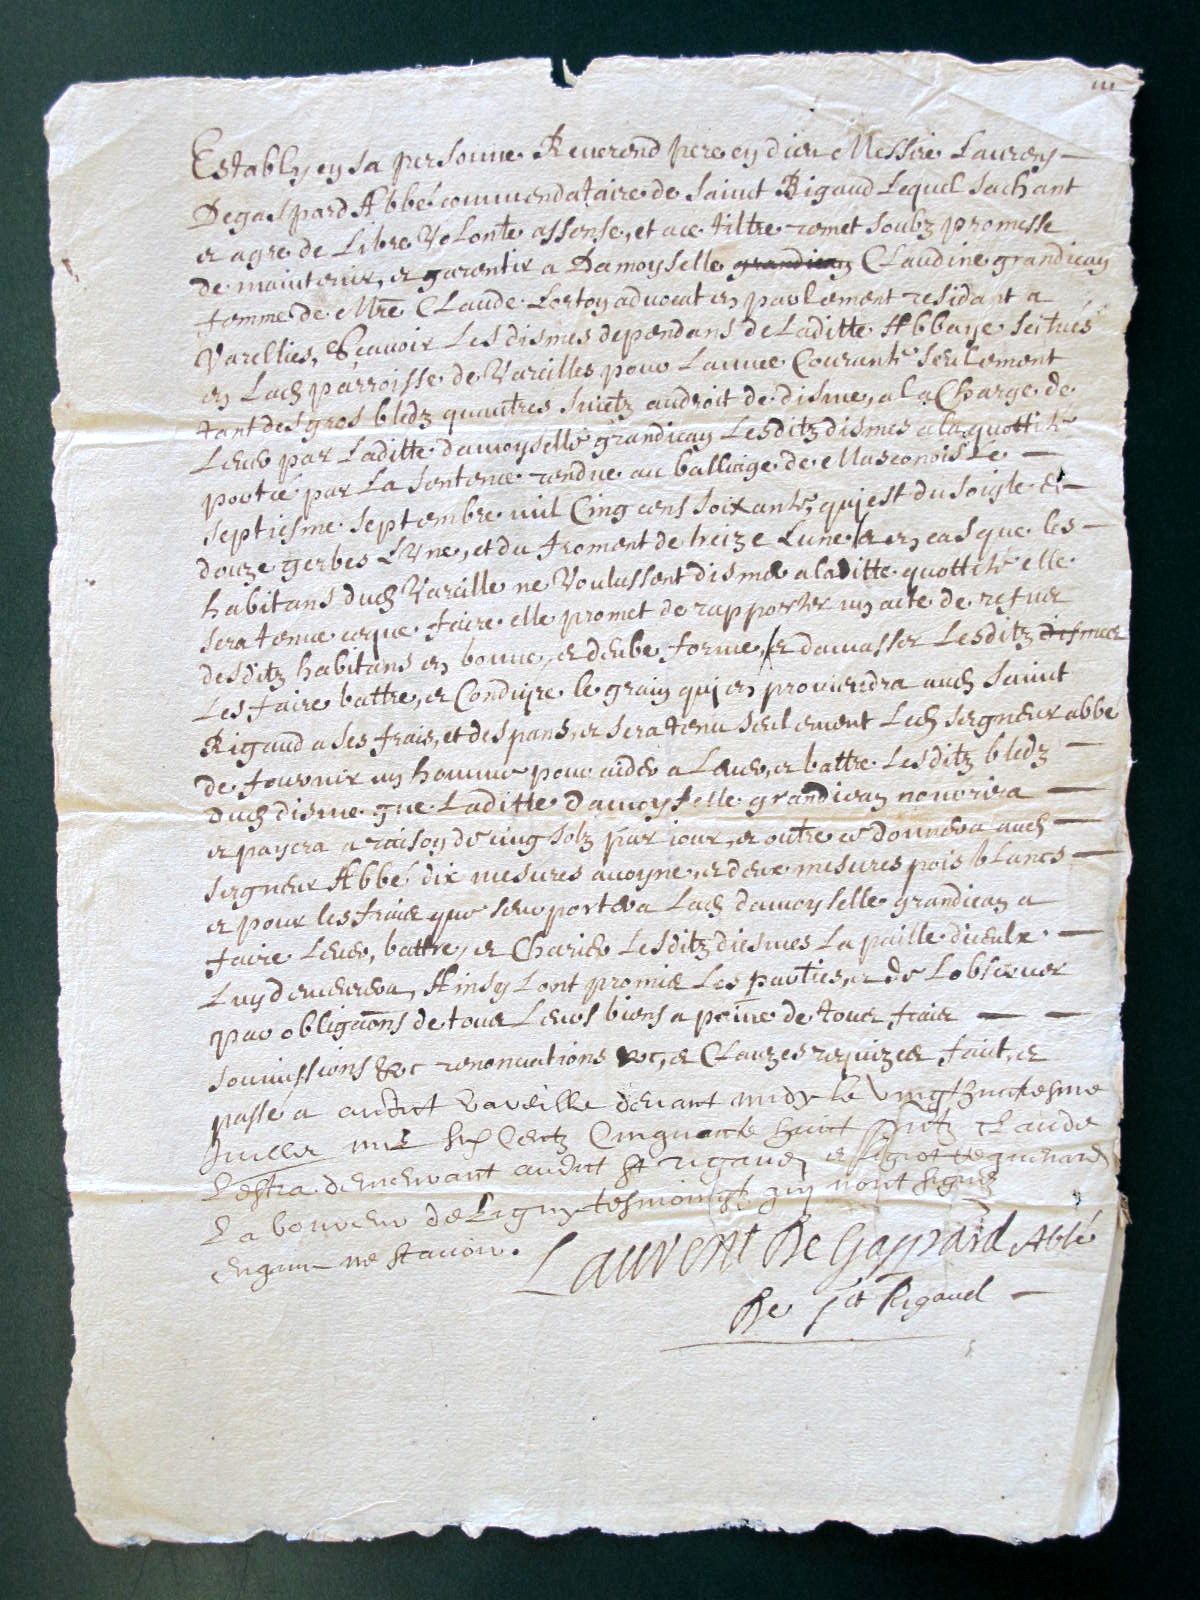 Establly en sa personne Reverend pere en dieu Messire Laurens
Degaspard Abbé commendataire de Saint Rigaud Lequel sachant
et agre de Libre Volonte assense, et ace tiltre remet soubz promesse
de maintenir, et garentir a Damoyselle grandiean Claudine grandiean
femme de Mre Claude Lortoy advocat en parlement residant a
Vareilles, Sçavoir Les dismes dependans de Laditte Abbaye scitues
en Lad parroisse de Vareilles pour Lannee Courante seulement
tant des gros bledz quautres suietz audroit de disme, a la Charge de
Lever par Laditte damoyselle grandiean Lesditz dismes a la quottité
portée par La sentence rendue au balliage de Masconois Le
septiesme septembre mil Cinq cens soixante, qui est du soigle de
douze gerbes Lune, et du froment de treize Lune et en cas que les
habitans dud Vareille ne Voulussent dismer a laditte quottité elle
sera tenue ce que faire elle promet de rapporter un acte de refuz
desditz habitans en bonne, et deube forme, et damasser Lesditz dismes
Les faire battre, et Conduire le grain qui en proviendra aud Saint
Rigaud a ses frais, et despans, et sera tenu seulement Led seigneur abbe
de fournir un homme pour aider a Lever, et battre Lesditz bledz
dud disme que Laditte damoyselle grandiean nourrira
et payera a raison de cinq solz par iour, et outre ce donnera aud
seigneur Abbé dix mesures avoyne, et deux mesures pois blancs
et pour les fraiz que suportera Lad damoyselle grandiean a
faire Lever, battre, et Charier Lesditz diesmes La paille diceulx
Luy demeurera, Ainsy Lont promis Les parties, et de Lobserver
par obligaons de tous Leurs biens a peine de tous frais
soumissions &c renonciations &c, et Clauzes requizes fait, et
passé a audict Vareille devant midy le Vingthuictiesme
Juillet mil six Centz Cinquante huict Claude
Lestra demeurant audict St rigaud, et
Laboureur de Ligny tesmoingz qui nont signe
enquis ne scavoir.
Laurent De Gaspard Abbé
De st Rigaud